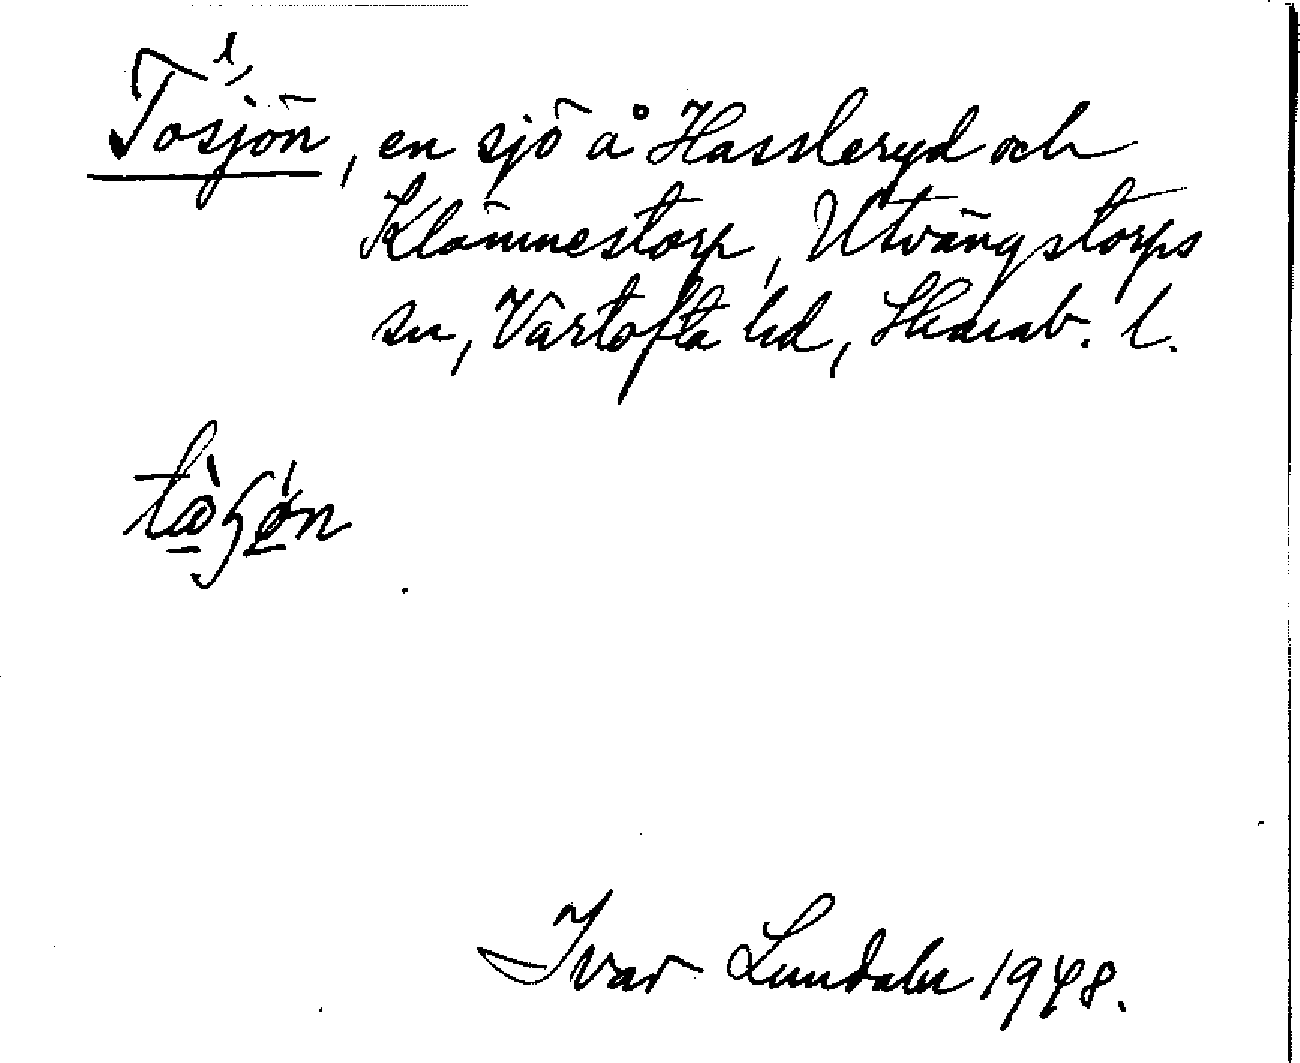 Tosjön, en sjö å Hassleryd och
Klämmestorp, Utvängstorps
sn, Vartofta hd, Skarab. l.
Ivar Lundahl 1948.